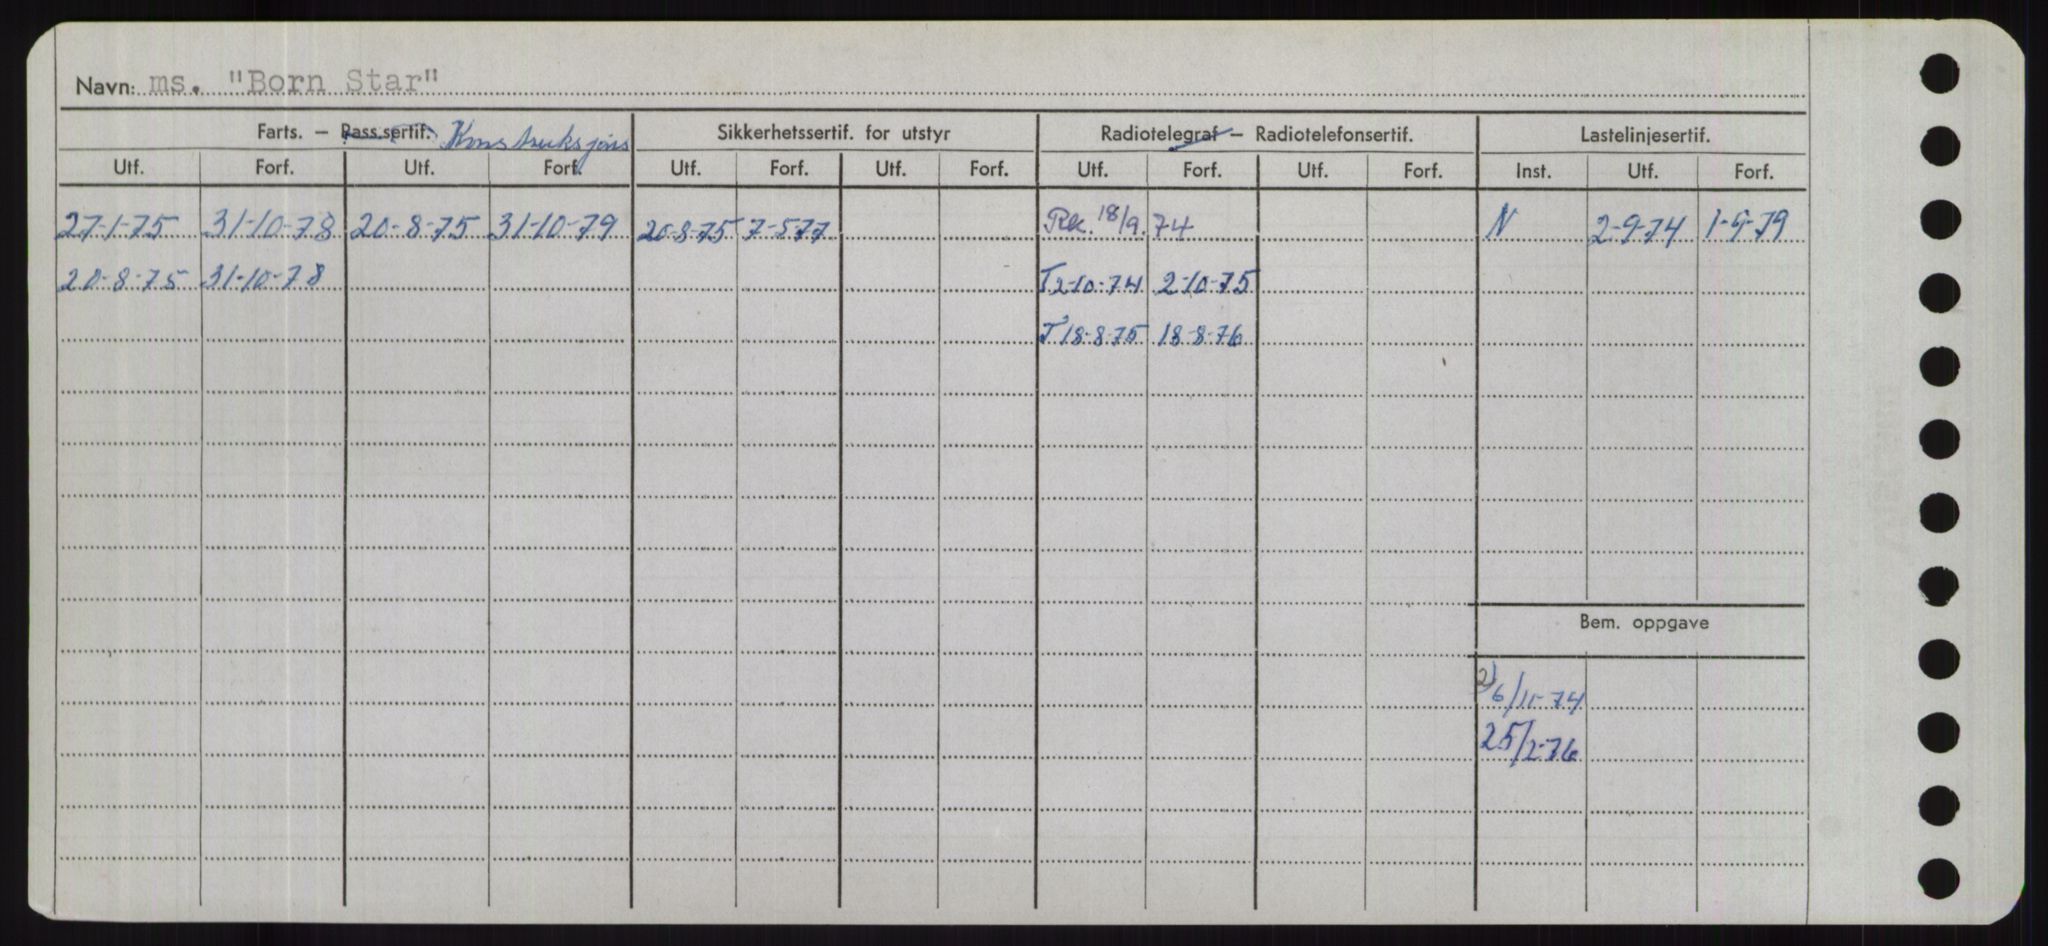 Navn: ms. "Born Star"
Farts. – Pass.sertif. Konstruksjons Sikkerhetssertif. for utstyr Radiotelegraf – Radiotelefonsertif. Lastelinjesertif.
Utf. Forf. Utf. Forf. Utf. Forf. Utf. Forf. Utf. Forf. Utf. Forf. Inst. Utf. Forf.
27-1-75 31-10-78 20-8-75 31-10-79 20-8-75 7-5-77 Rek. 18/9. 74 N 2-9-74 1-9-79
20-8-75 31-10-78 T 2-10-74 2-10-75
T 18-8-75 18-8-76
Bem. oppgave
2) 6/11-74
25/2-76